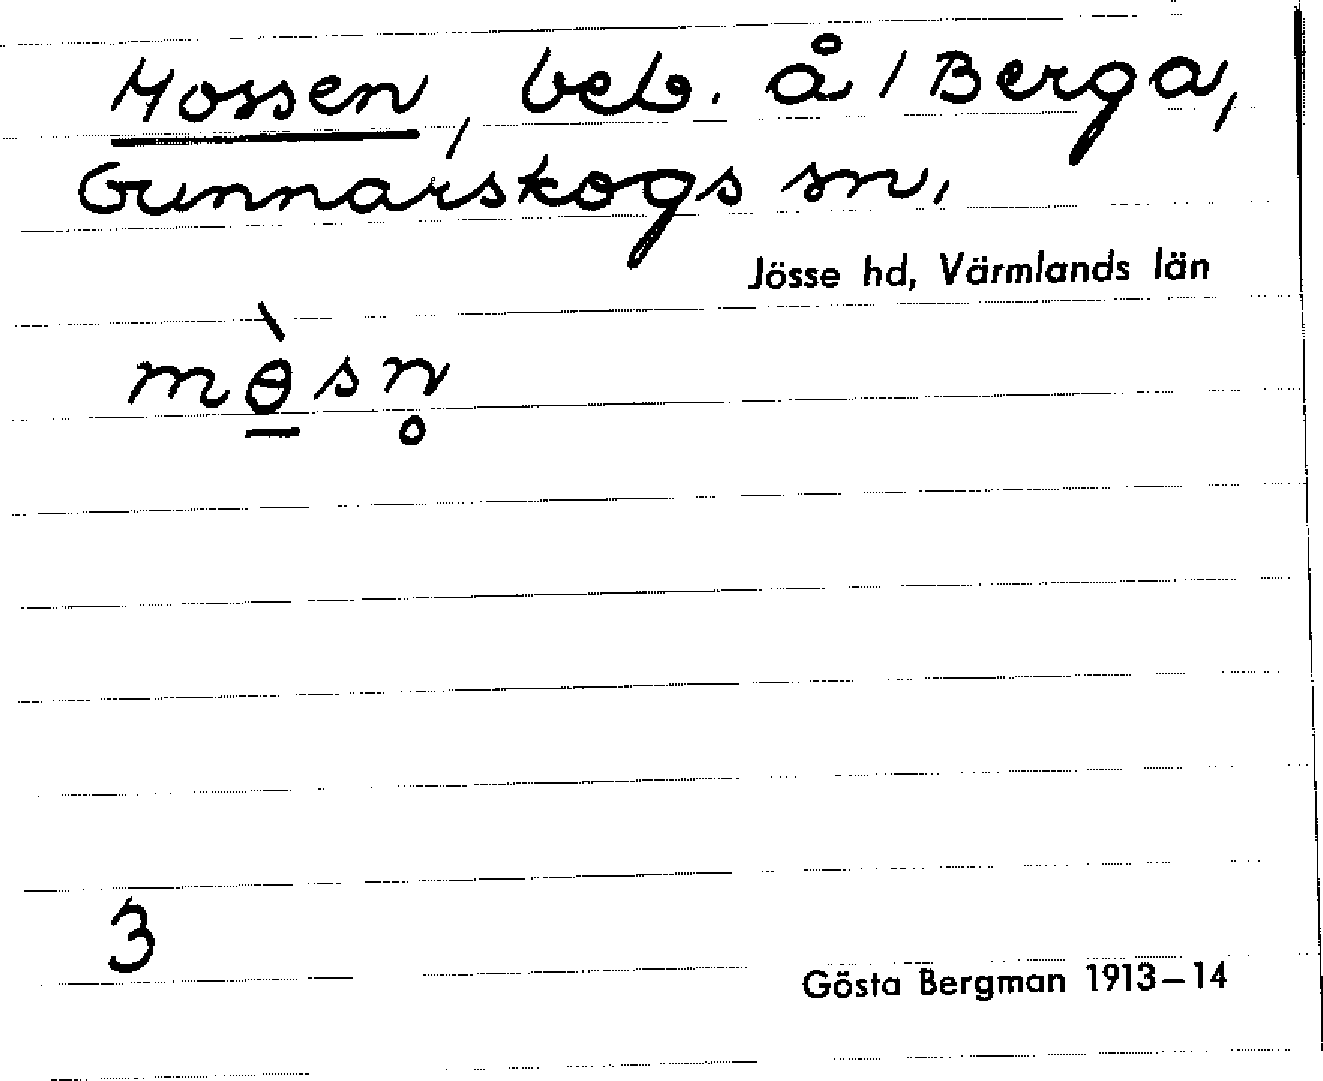 Mossen, beb. å / Berga,
Gunnarskogs sn,
Jösse hd, Värmlands län
mɵ̠̀sn̥
3
Gösta Bergman 1913–14